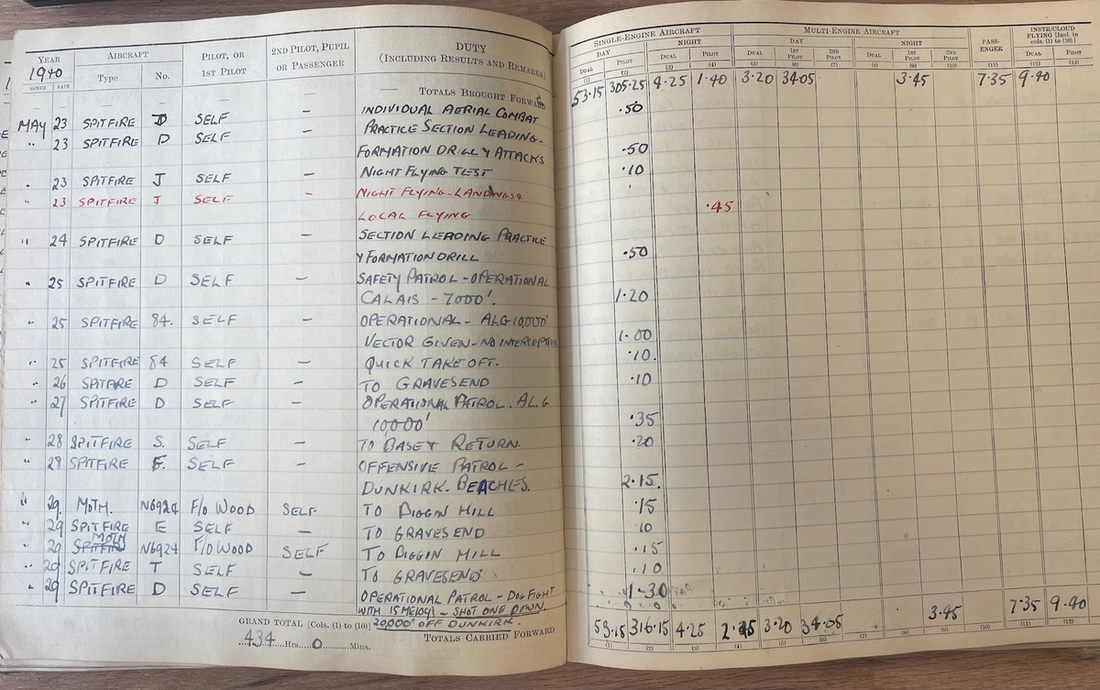 YEAR AIRCRAFT PILOT, OR 1ST PILOT 2ND PILOT, PUPIL OR PASSENGER DUTY (INCLUDING RESULTS AND REMARKS) SINGLE-ENGINE AIRCRAFT MULTI-ENGINE AIRCRAFT PASS-ENGER INSTR/CLOUD FLYING [Incl. in cols. (1) to (10)]
1940 Type No. DAY NIGHT DAY NIGHT
MONTH DATE DUAL PILOT DUAL PILOT DUAL 1ST PILOT 2ND PILOT DUAL 1ST PILOT 2ND PILOT DUAL PILOT
(1) (2) (3) (4) (5) (6) (7) (8) (9) (10) (11) (12) (13)
— — — — — — TOTALS BROUGHT FORWARD 53.15 305.25 4.25 1.40 3.20 34.05 3.45 7.35 9.40
MAY 23 SPITFIRE D SELF — INDIVIDUAL AERIAL COMBAT .50
" 23 SPITFIRE D SELF — PRACTICE SECTION LEADING-
FORMATION DRILL & ATTACKS .50
" 23 SPITFIRE J SELF — NIGHT FLYING TEST .10
" 23 SPITFIRE J SELF — NIGHT FLYING-LANDINGS &
LOCAL FLYING .45
" 24 SPITFIRE D SELF — SECTION LEADING PRACTICE
& FORMATION DRILL .50
" 25 SPITFIRE D SELF — SAFETY PATROL - OPERATIONAL
CALAIS - 7000'. 1.20
" 25 SPITFIRE 84. SELF — OPERATIONAL - ALG 10,000'
VECTOR GIVEN - NO INTERCEPTION 1.00
" 25 SPITFIRE 84 SELF — QUICK TAKE OFF. .10.
" 26 SPITFIRE D SELF — TO GRAVESEND .10
" 27 SPITFIRE D SELF — OPERATIONAL PATROL. AL.G
10,000' .35
" 28 SPITFIRE S. SELF — TO BASE & RETURN .20
" 29 SPITFIRE F. SELF — OFFENSIVE PATROL -
DUNKIRK. BEACHES. 2.15.
" 29. MOTH. N6924 F/O WOOD SELF TO BIGGIN HILL .15
" 29 SPITFIRE E SELF — TO GRAVESEND 10
" 29 MOTH N6924 F/O WOOD SELF TO BIGGIN HILL .15
" 29 SPITFIRE T SELF — TO GRAVESEND .10
" 29 SPITFIRE D SELF — OPERATIONAL PATROL - DOG FIGHT 1-30
WITH 15 ME109s - SHOT ONE DOWN.
20,000' OFF DUNKIRK.
GRAND TOTAL [Cols. (1) to (10)]
434 Hrs. 0 Mins.
TOTALS CARRIED FORWARD 53.15 316.15 4.25 2.25 3.20 34.05 3.45 7.35 9.40
(1) (2) (3) (4) (5) (6) (7) (8) (9) (10) (11) (12) (13)